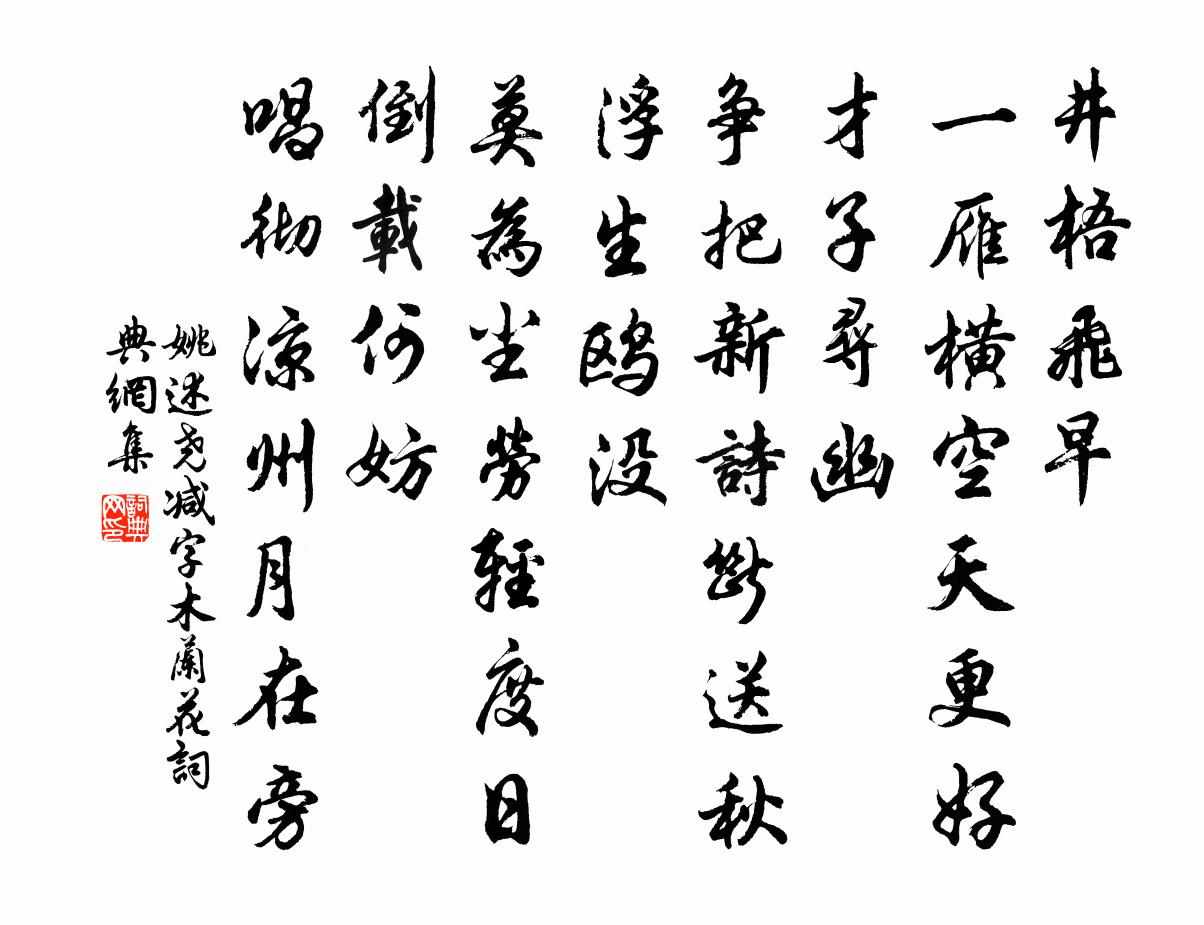 井梧飛早
一雁橫空天更好
才子尋幽
争把新詩斷送秋
浮生鷗没
莫為塵勞輕度日
倒載何妨
唱彻凉州月在旁
姚述尧減字木蘭花詞
典網集
詞典网印